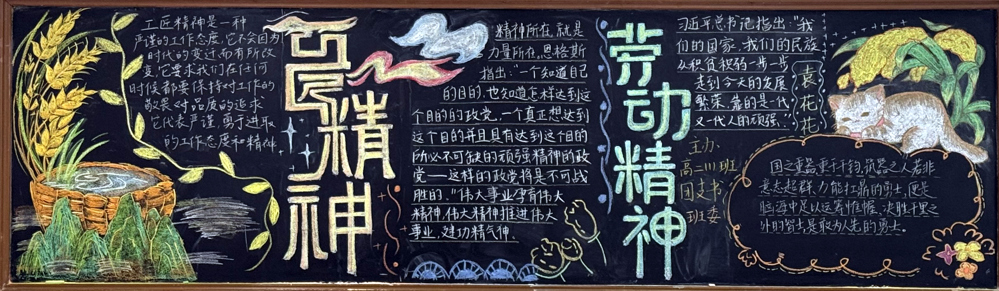 工匠精神是一种
严谨的工作态度,它不会因为
时代的变迁而有所改
变,它要求我们在任何
时候都要保持对工作的
敬畏,对品质的追求
它代表严谨、勇于进取
的工作态度和精神
工匠精神
精神所在,就是
力量所在,恩格斯
指出:"一个知道自己
的目的,也知道怎样达到这
个目的的政党,一个真正想达到
这个目的并且具有达到这个目的
所必不可缺的顽强精神的政
党——这样的政党将是不可战
胜的。"伟大事业孕育伟大
精神,伟大精神推进伟大
事业,建功精气神.
劳动精神
习近平总书记指出:"我
们的国家,我们的民族
从积贫积弱一步一步
走到今天的发展
繁荣,靠的是一代
又一代人的顽强
主办
高二
班
团支书
班委
国之重器重千钧,识器之人若非
意志超群、力能扛鼎的勇士,便是
脑海中足以运筹帷幄、决胜千里之
外的智士,是敢为人先的勇士。